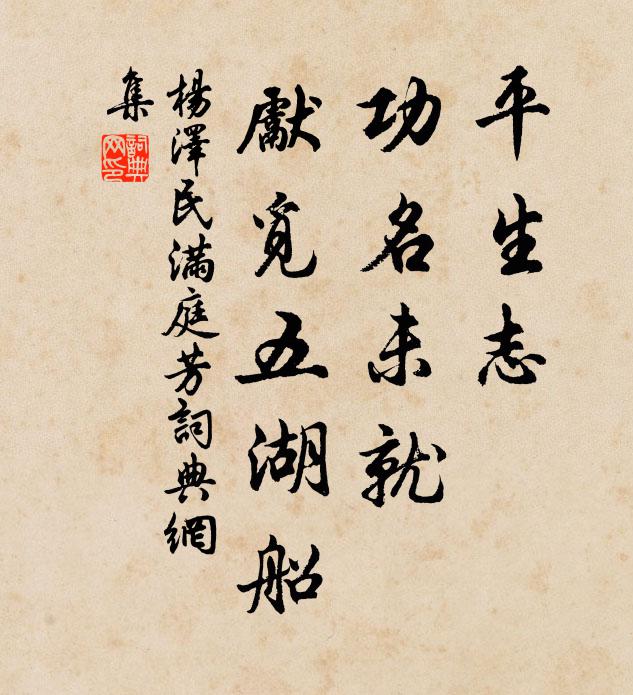 平生志
功名未就
獻覓五湖船
楊澤民滿庭芳詞典網
集
詞典
网印